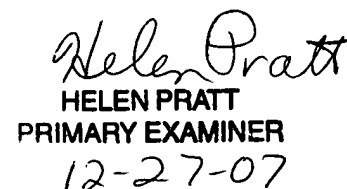 Helen Pratt
HELEN PRATT
PRIMARY EXAMINER
12-27-07